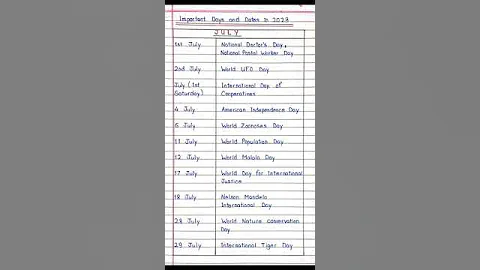 Important Days and Dates in 2023
JULY
1st July National Doctor's Day,
National Postal Worker Day
2nd July World UFO Day
July (1st International Day of
Saturday) Cooperatives
4 July American Independence Day
6 July World Zoonoses Day
11 July World Population Day
12 July World Malala Day
17 July World Day for International
Justice
18 July Nelson Mandela
International Day
28 July World Nature Conservation
Day
29 July International Tiger Day